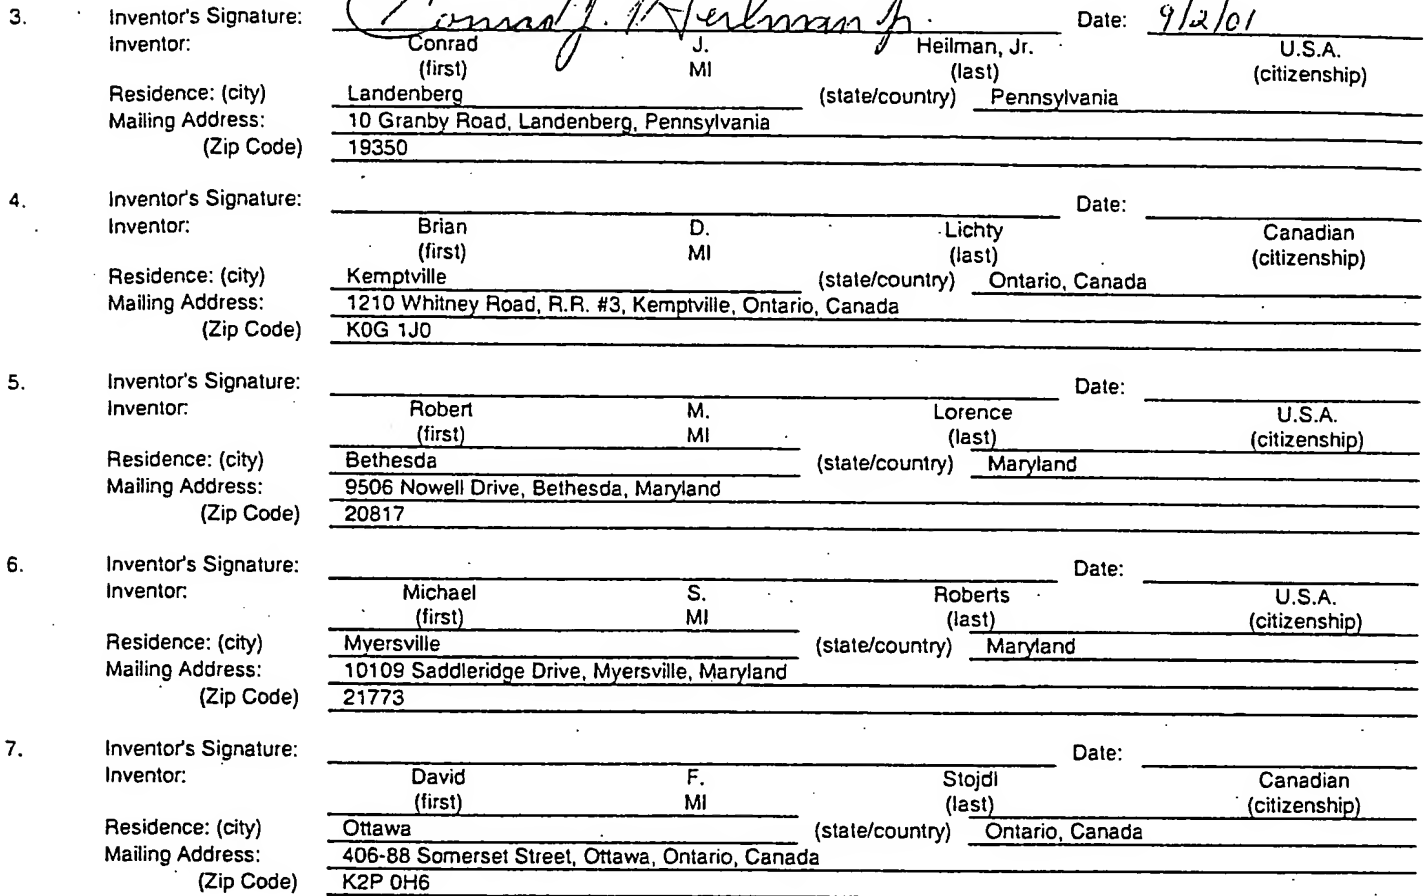 3. Inventor's Signature: Conrad J. Heilman Jr. Date: 9/2/01
Inventor: Conrad J. Heilman, Jr. U.S.A.
(first) MI (last) (citizenship)
Residence: (city) Landenberg (state/country) Pennsylvania
Mailing Address: 10 Granby Road, Landenberg, Pennsylvania
(Zip Code) 19350
4. Inventor's Signature: Date:
Inventor: Brian D. Lichty Canadian
(first) MI (last) (citizenship)
Residence: (city) Kemptville (state/country) Ontario, Canada
Mailing Address: 1210 Whitney Road, R.R. #3, Kemptville, Ontario, Canada
(Zip Code) K0G 1J0
5. Inventor's Signature: Date:
Inventor: Robert M. Lorence U.S.A.
(first) MI (last) (citizenship)
Residence: (city) Bethesda (state/country) Maryland
Mailing Address: 9506 Nowell Drive, Bethesda, Maryland
(Zip Code) 20817
6. Inventor's Signature: Date:
Inventor: Michael S. Roberts U.S.A.
(first) MI (last) (citizenship)
Residence: (city) Myersville (state/country) Maryland
Mailing Address: 10109 Saddleridge Drive, Myersville, Maryland
(Zip Code) 21773
7. Inventor's Signature: Date:
Inventor: David F. Stojdl Canadian
(first) MI (last) (citizenship)
Residence: (city) Ottawa (state/country) Ontario, Canada
Mailing Address: 406-88 Somerset Street, Ottawa, Ontario, Canada
(Zip Code) K2P 0H6